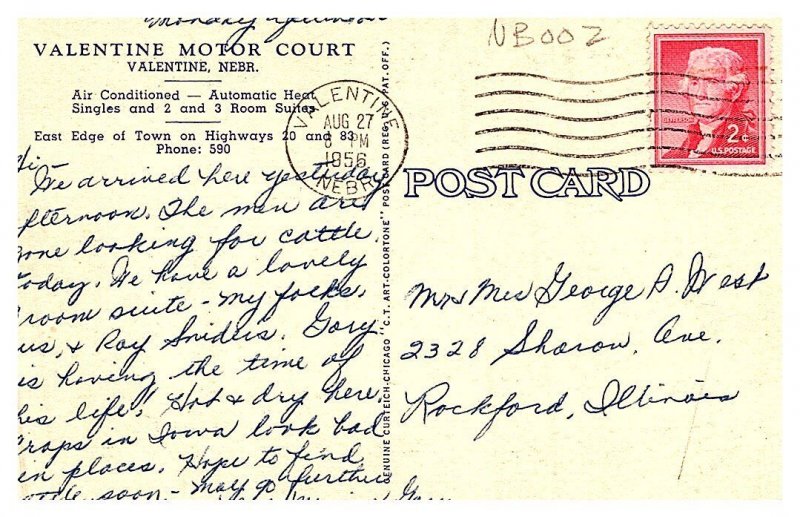 Monday afternoon
VALENTINE MOTOR COURT
VALENTINE, NEBR.
Air Conditioned — Automatic Heat
Singles and 2 and 3 Room Suites
East Edge of Town on Highways 20 and 83
Phone: 590
Hi
We arrived here yesterday
fternoon. The men are
one looking for cattle
oday. We have a lovely
room suite - my folks,
us, & Ray Sniders. Gary
is having the time of
his life! Hot & dry here,
rops in Iowa look bad
in places. Hope to find
soon - may go further
Gary
GENUINE CURTEICH-CHICAGO "C.T. ART-COLORTONE" POST CARD (REG. U.S. PAT. OFF.)
NB002
VALENTINE
AUG 27
8 PM
1956
NEBR.
JEFFERSON
2¢
U.S. POSTAGE
POST CARD
Mr & Mrs George A. West
2328 Sharon Ave.
Rockford, Illinois